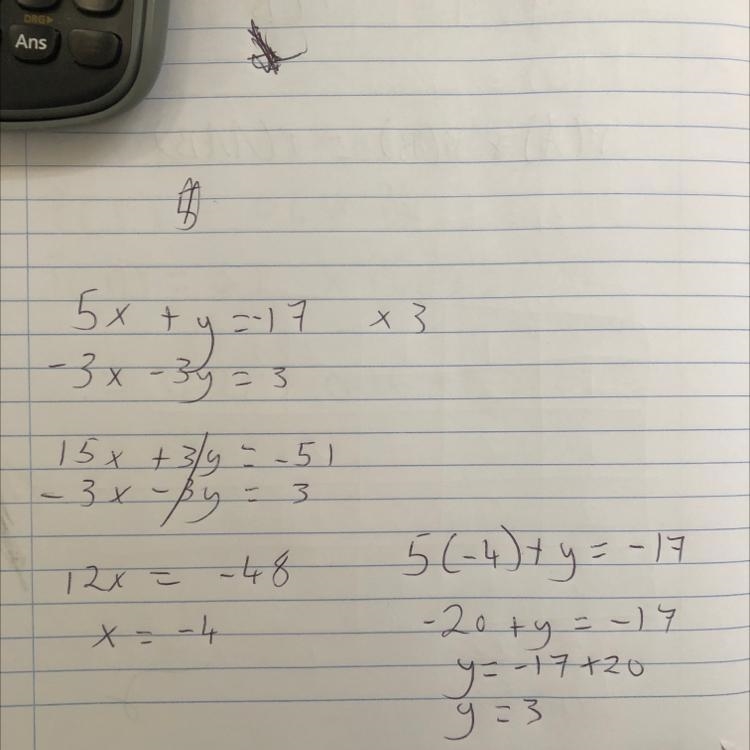 DRG▶
Ans
5x + y = -17 x 3
-3x - 3y = 3
15x + 3y = -51
-3x - 3y = 3
12x = -48
x = -4
5(-4) + y = -17
-20 + y = -17
y = -17 + 20
y = 3